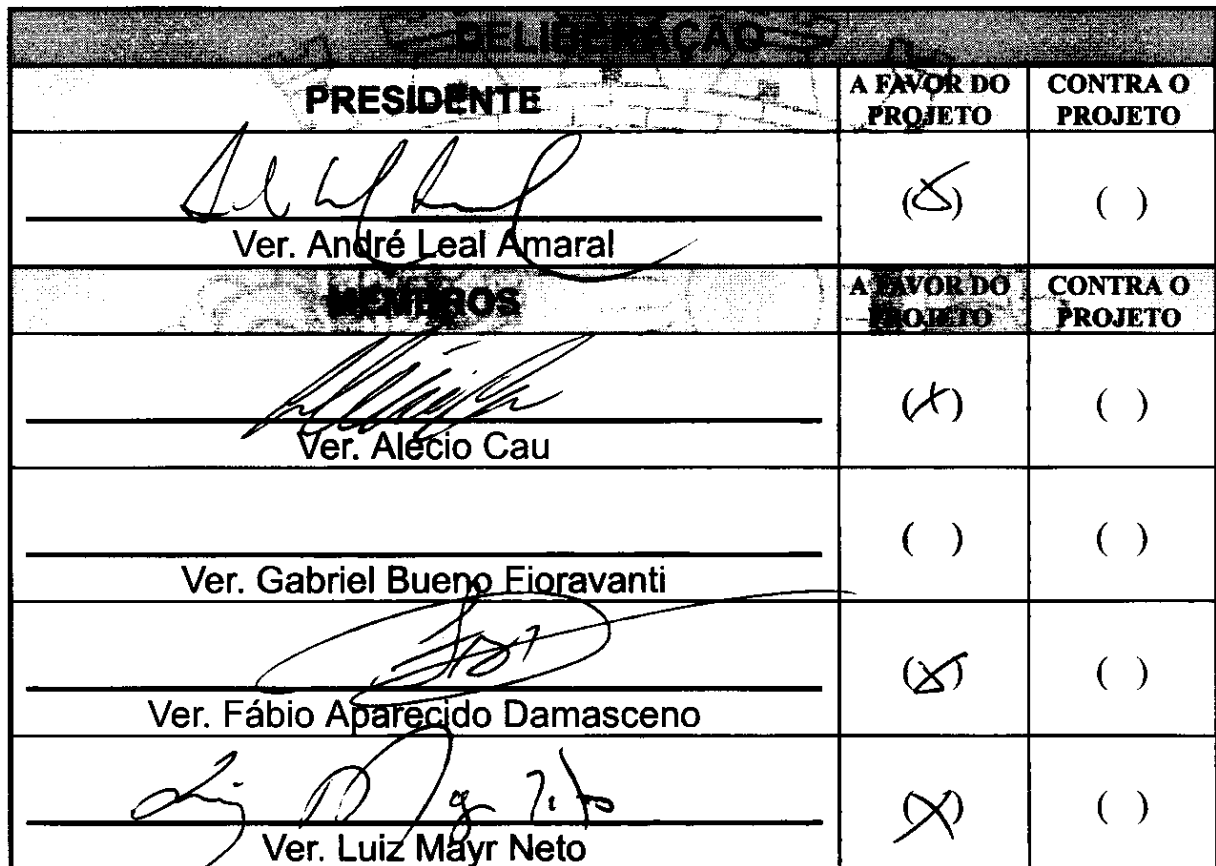 DELIBERAÇÃO
PRESIDENTE
A FAVOR DO PROJETO
CONTRA O PROJETO
Ver. André Leal Amaral
(X)
( )
MEMBROS
A FAVOR DO PROJETO
CONTRA O PROJETO
Ver. Alécio Cau
(X)
( )
Ver. Gabriel Bueno Fioravanti
( )
( )
Ver. Fábio Aparecido Damasceno
(X)
( )
Ver. Luiz Mayr Neto
(X)
( )